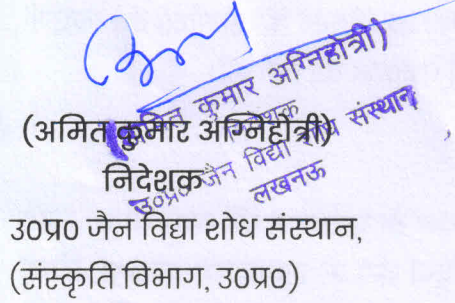 (अमित कुमार अग्निहोत्री)
निदेशक
उ०प्र० जैन विद्या शोध संस्थान
लखनऊ
(अमित कुमार अग्निहोत्री)
निदेशक
उ०प्र० जैन विद्या शोध संस्थान,
(संस्कृति विभाग, उ०प्र०)